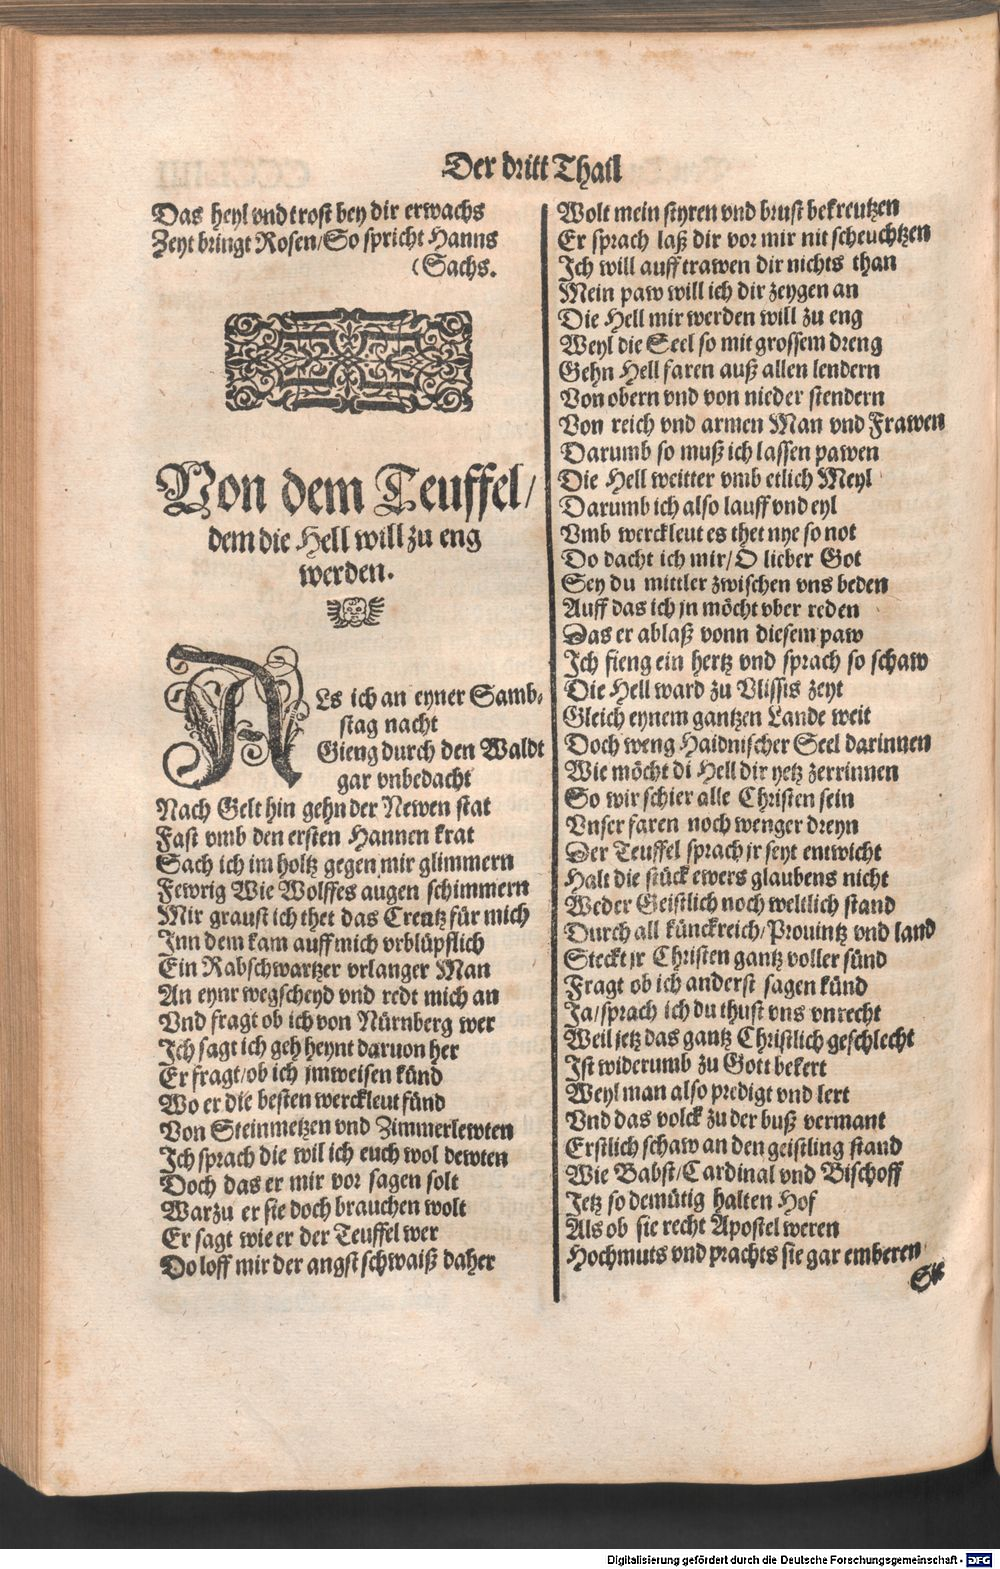 Der dritt Thail
Das heyl vnd trost bey dir erwachs
Zeyt bringt Rosen/So spricht Hanns
(Sachs.
Von dem Teuffel/
dem die Hell will zu eng
werden.
ALs ich an eyner Samb-
stag nacht
Gieng durch den Waldt
gar vnbedacht
Nach Gelt hin gehn der Newen stat
Fast vmb den ersten Hannen krat
Sach ich im holtz gegen mir glimmern
Fewrig Wie Wolffes augen schimmern
Mir graust ich thet das Creutz für mich
Inn dem kam auff mich vrblüpflich
Ein Rabschwartzer vrlanger Man
An eynr wegscheyd vnd redt mich an
Vnd fragt ob ich von Nürnberg wer
Ich sagt ich geh heynt daruon her
Er fragt/ob ich jm weisen künd
Wo er die besten werckleut fünd
Von Steinmetzen vnd Zimmerlewten
Ich sprach die wil ich euch wol dewten
Doch das er mir vor sagen solt
Warzu er sie doch brauchen wolt
Er sagt wie er der Teuffel wer
Do loff mir der angst schwaiß daher
Wolt mein styren vnd brust bekreutzen
Er sprach laß dir vor mir nit scheuchtzen
Ich will auff trawen dir nichts than
Mein paw will ich dir zeygen an
Die Hell mir werden will zu eng
Weyl die Seel so mit grossem dreng
Gehn Hell faren auß allen lendern
Von obern vnd von nieder stendern
Von reich vnd armen Man vnd Frawen
Darumb so muß ich lassen pawen
Die Hell weitter vmb etlich Meyl
Darumb ich also lauff vnd eyl
Vmb werckleut es thet nye so not
Do dacht ich mir/O lieber Got
Sey du mittler zwischen vns beden
Auff das ich jn möcht vber reden
Das er ablaß vonn diesem paw
Ich fieng ein hertz vnd sprach so schaw
Die Hell ward zu Vlissis zeyt
Gleich eynem gantzen Lande weit
Doch weng Haidnischer Seel darinnen
Wie möcht di Hell dir yetz zerrinnen
So wir schier alle Christen sein
Vnser faren noch wenger dreyn
Der Teuffel sprach jr seyt entwicht
Halt die stück ewers glaubens nicht
Weder Geistlich noch weltlich stand
Durch all künckreich/Prouintz vnd land
Steckt jr Christen gantz voller sünd
Fragt ob ich anderst sagen künd
Ja/sprach ich du thust vns vnrecht
Weil jetz das gantz Christlich geschlecht
Ist widerumb zu Gott bekert
Weyl man also predigt vnd lert
Vnd das volck zu der buß vermant
Erstlich schaw an den geistling stand
Wie Babst/Cardinal vnd Bischoff
Jetz so demütig halten Hof
Als ob sie recht Apostel weren
Hochmuts vnd prachts sie gar emberen
Digitalisierung gefördert durch die Deutsche Forschungsgemeinschaft - DFG